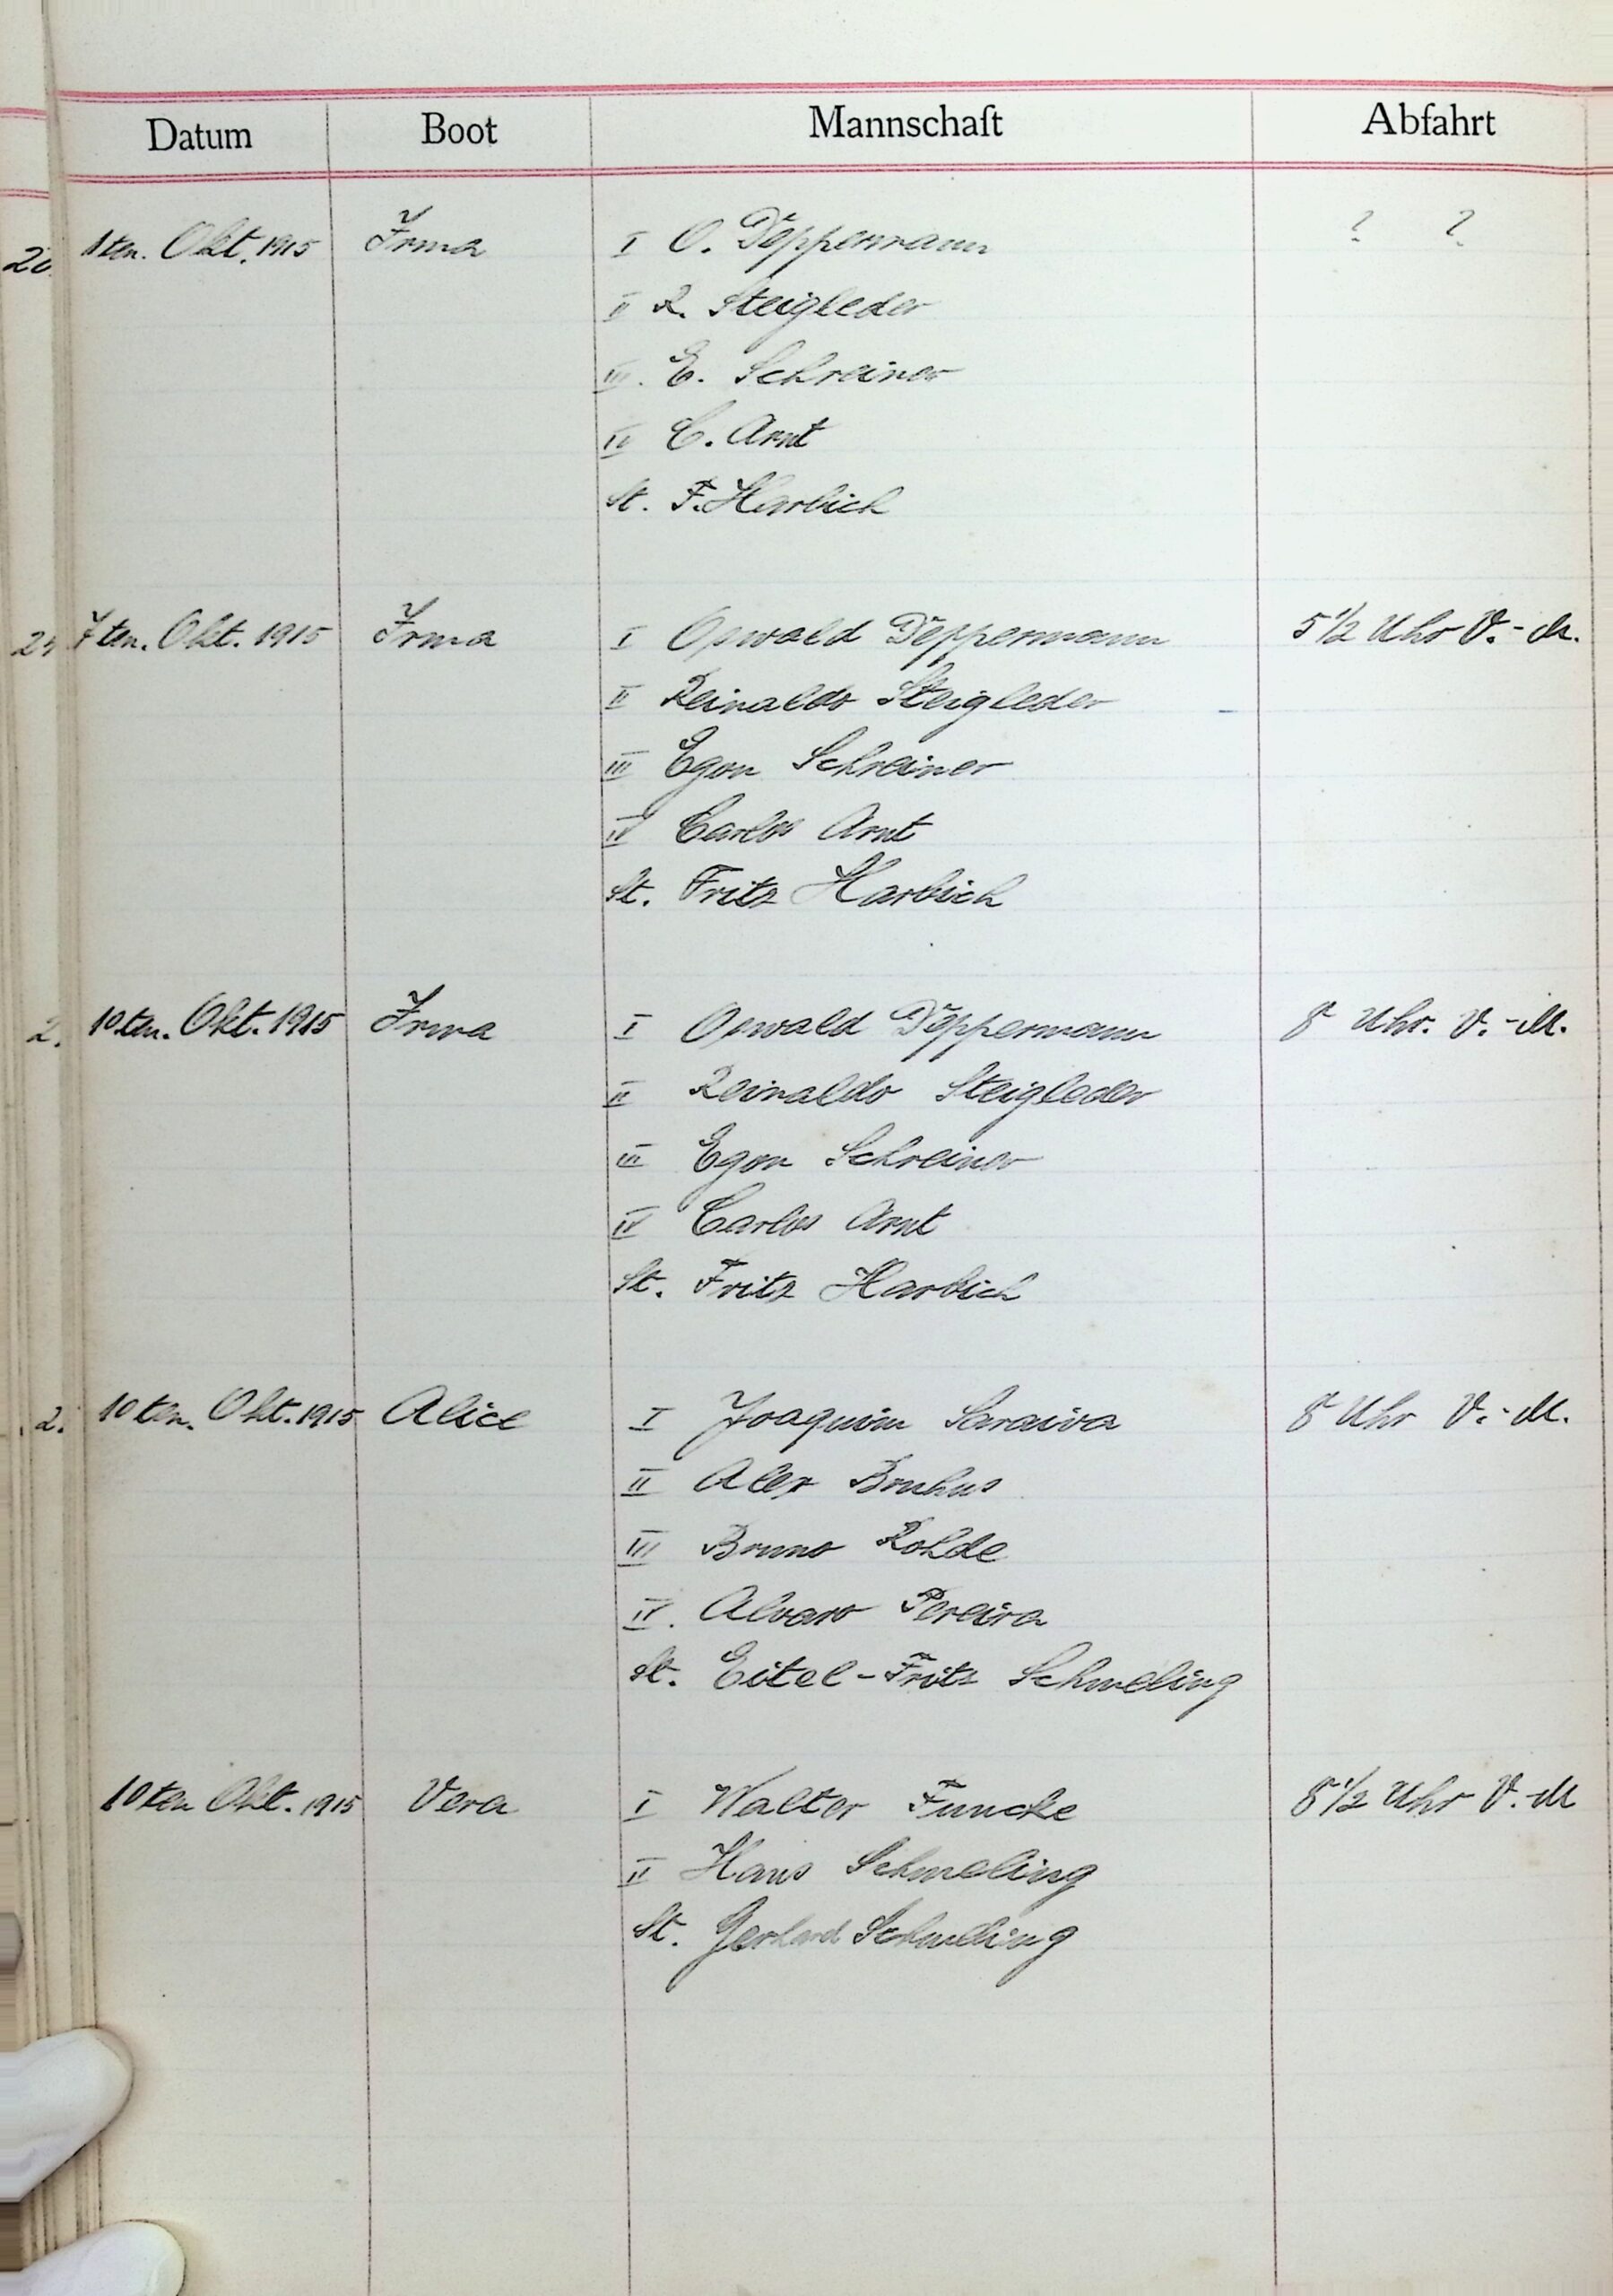 Datum Boot Mannschaft Abfahrt
1ten. Okt. 1915 Irma I O. Döppermann ? ?
II R. Steigleder
III. E. Schreiner
IV C. Arnt
St. F. Harbich
7ten. Okt. 1915 Irma I Oswald Döppermann 5 1/2 Uhr V.-M.
II Reinaldo Steigleder
III Egon Schreiner
IV Carlos Arnt
St. Fritz Harbich
10ten. Okt. 1915 Irma I Oswald Döppermann 8 Uhr. V.-M.
II Reinaldo Steigleder
III Egon Schreiner
IV Carlos Arnt
St. Fritz Harbich
10ten. Okt. 1915 Alice I Joaquim Saraiva 8 Uhr V.-M.
II Alex Bruhns
III Bruno Rohde
IV. Alvaro Pereira
St. Eitel-Fritz Schmeling
10ten Okt. 1915 Vera I Walter Funcke 8 1/2 Uhr V.-M
II Hans Schmeling
St. Gerhard Schmeling